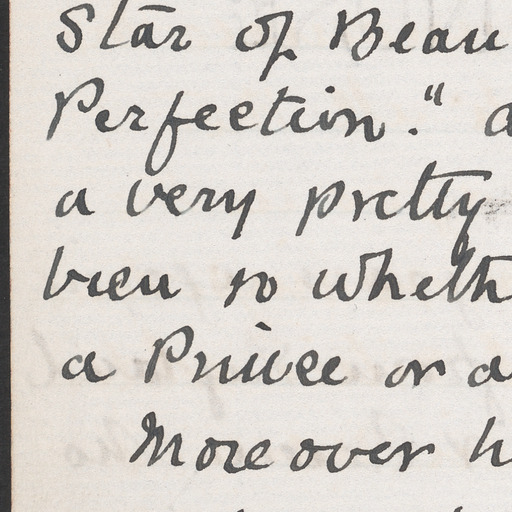 Star of Beau
Perfection." a
a very pretty
been so wheth
a Prince or a
Moreover h